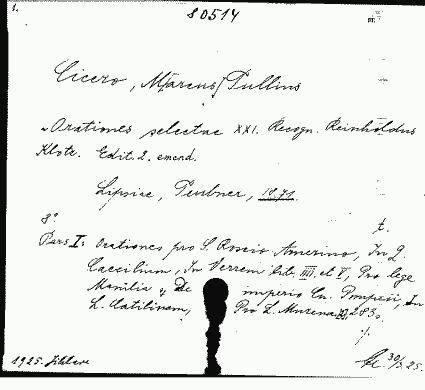 1.
80514
Cicero, Marcus Tullius
Orationes selectae XXI. Recogn. Reinholdus
Klotz. Edit. 2. emend.
Lipsiae, Teubner, 1871.
8°
t.
Pars I: Orationes pro S. Roscio Amerino, In Q.
Caecilium, In Verrem lib. IIII et V, Pro lege
Manilia, De imperio Cn. Pompeii, In
L. Catilinam, Pro L. Murena
1925.